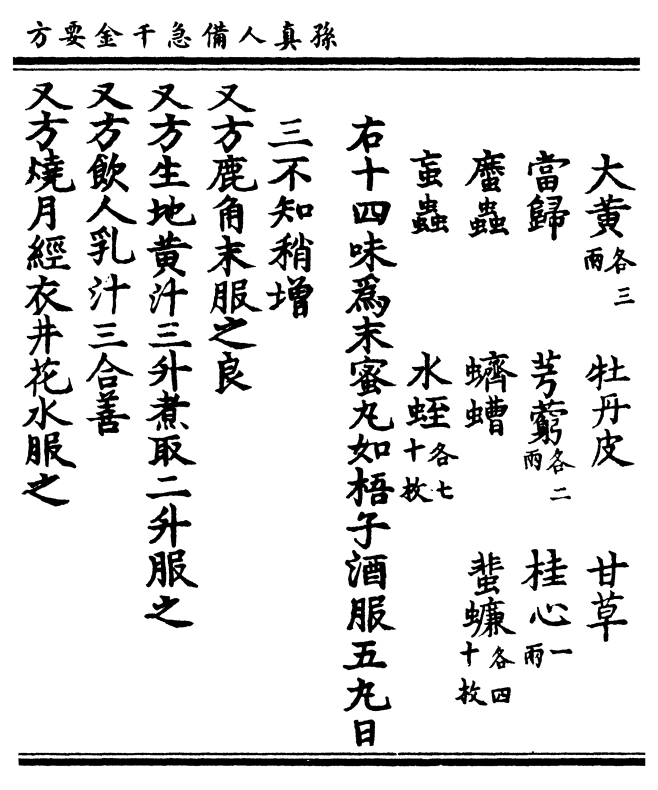 孫真人備急千金要方
大黃 牡丹皮 甘草各三兩
當歸 芎藭各二兩 桂心一兩
䗪蟲 蠐螬 蜚蠊各四十枚
虻蟲 水蛭各七十枚
右十四味爲末蜜丸如梧子酒服五丸日
三不知稍增
又方鹿角末服之良
又方生地黃汁三升煮取二升服之
又方飲人乳汁三合善
又方燒月經衣井花水服之